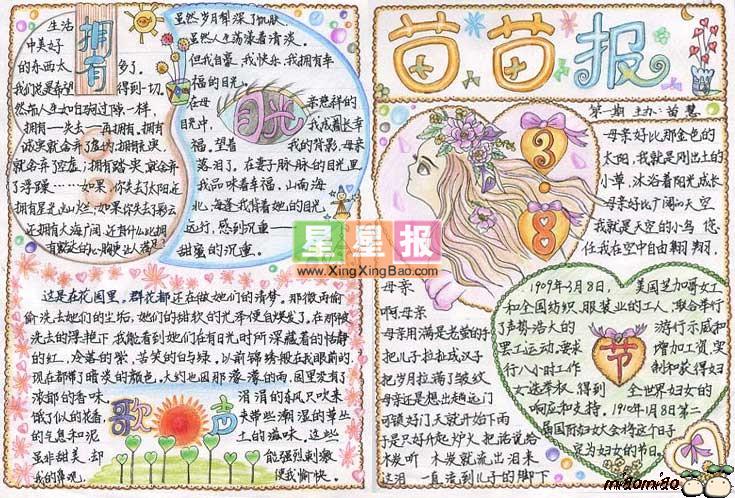 拥有
生活
中美好
的东西太多了。
我们总是希望得到一切。
然而人生如白驹过隙一样，
拥有—失去—再拥有。拥有
诚实就舍弃了虚伪；拥有充实
就舍弃了空虚；拥有踏实，就舍弃
了浮躁……如果，你失去了太阳，还
拥有星光；如果你失去了彩云
还拥有大海广阔
虽然岁月
虽然人生荡漾着清淡。
但我自豪、我快乐，我拥有幸
福的目光。
目光
在母亲慈祥的
目光中，我成长幸
福。望着我的背影，母亲
落泪了。在妻子脉脉的目光里
我品味着幸福。山南海
北，海边我背着她的目光
远行，感到沉重——
甜蜜的沉重。
星星报
www.XingXingBao.com
歌声
这是在花园里，群花都还在做她们的清梦。那微雨偷
偷洗去她们的尘垢，她们的甜软的光泽便自焕发了。在那被
洗去的浮艳下，我能看到她们在有日光时所深藏着的恬静
的红，冷落的紫，苦笑的白与绿。以前锦绣般在我眼前的，
现在都带了暗淡的颜色。大约也因那濛濛的雨，园里没了
浓郁的香味。涓涓的东风只吹来
饿了似的花香，夹带些潮湿的草丛
的气息和泥土的滋味。这些
虽非甜美，却能强烈刺激
我的鼻观，使我愉快。
苗苗报
第一期 主办：苗慧
3
8
节
母亲好比那金色的
太阳，我就是刚出土的
小草，沐浴着阳光成长
母亲好比广阔的天空
我就是天空的小鸟 您
任我在空中自由翱翔。
母亲
啊母亲
母亲用满是老茧的手
把儿子拉扯成汉子
把岁月拉满了皱纹
母亲还是想出趟远门
可锁好门天就开始下雨
木炭就流出泪来
这泪一直流到儿子的脚下
1909年3月8日，美国芝加哥女工
和全国纺织、服装业的工人，联合举行
了声势浩大的游行示威和
罢工运动。要求增加工资，实
行八小时工作制和获得妇
女选举权。得到全世界妇女的
响应和支持。1910年
国
定为妇女的节日。
miaomiao